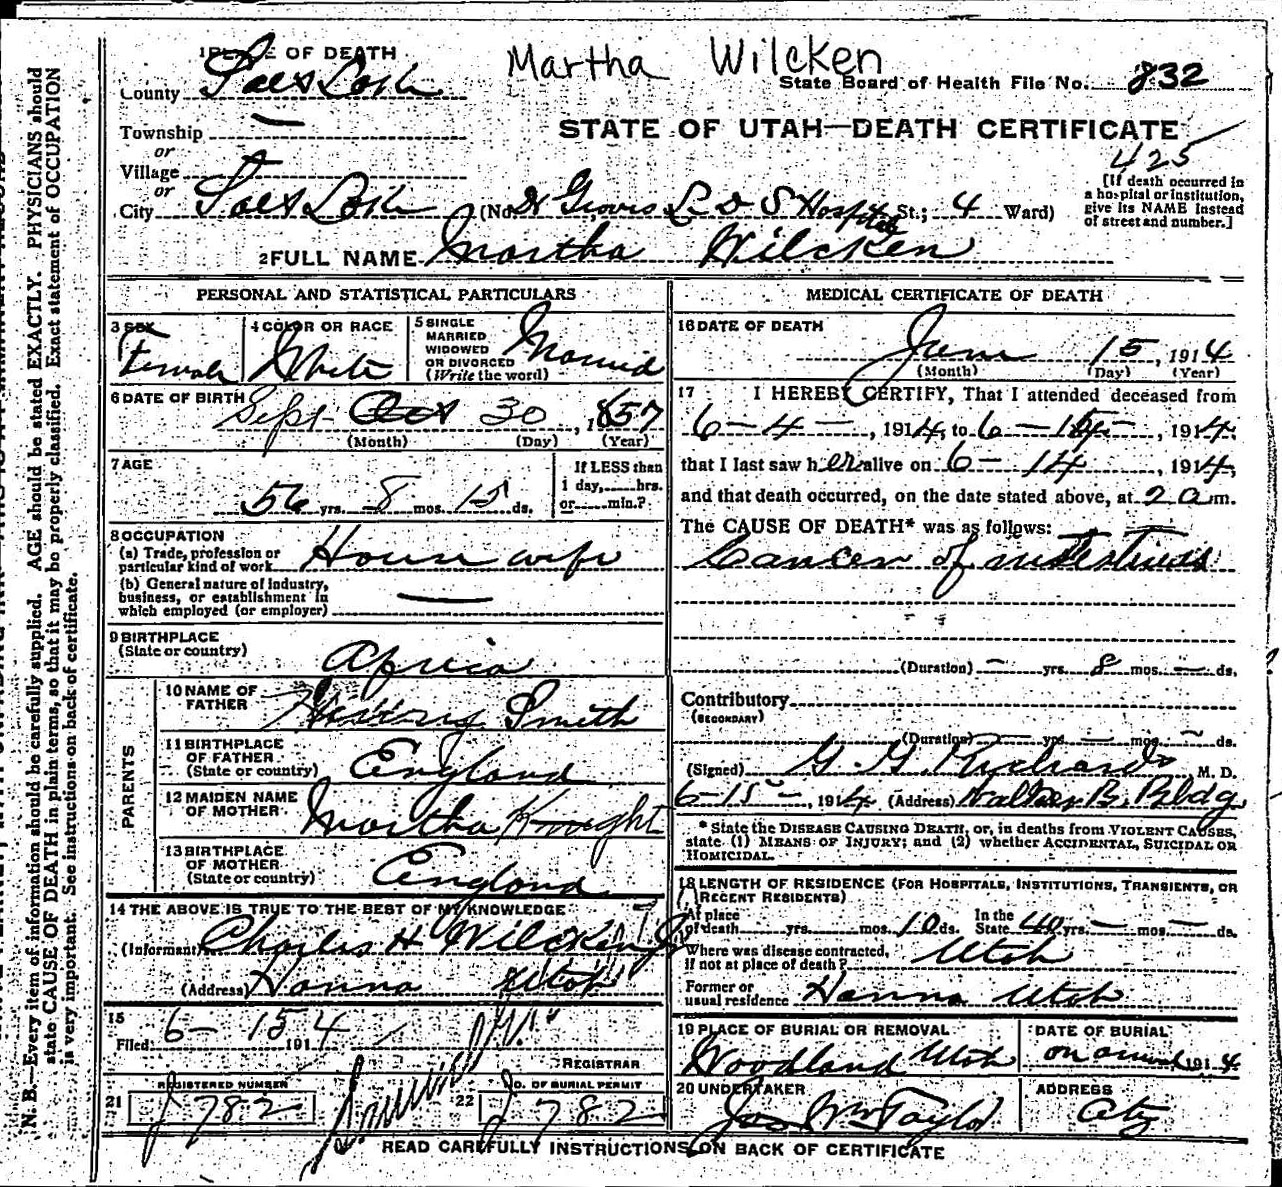 Martha Wilcken
1 PLACE OF DEATH
County Salt Lake
State Board of Health File No. 832
Township
or
STATE OF UTAH—DEATH CERTIFICATE
425
Village
or
City Salt Lake (No. Dr Groves L D S Hospital St.; 4 Ward)
[If death occurred in
a hospital or institution,
give its NAME instead
of street and number.]
2 FULL NAME Martha Wilcken
PERSONAL AND STATISTICAL PARTICULARS
3 SEX
Female
4 COLOR OR RACE
White
5 SINGLE
MARRIED
WIDOWED
OR DIVORCED
(Write the word)
Married
6 DATE OF BIRTH
Sept Oct 30, 1857
(Month) (Day) (Year)
7 AGE
56 yrs. 8 mos. 15 ds.
If LESS than
1 day, hrs.
or min.?
8 OCCUPATION
(a) Trade, profession or
particular kind of work House wife
(b) General nature of industry,
business, or establishment in
which employed (or employer) —
9 BIRTHPLACE
(State or country)
Africa
PARENTS
10 NAME OF
FATHER
Smith
11 BIRTHPLACE
OF FATHER
(State or country) England
12 MAIDEN NAME
OF MOTHER Martha Knight
13 BIRTHPLACE
OF MOTHER
(State or country) England
14 THE ABOVE IS TRUE TO THE BEST OF MY KNOWLEDGE
(Informant) Charles H Wilcken Jr
(Address) Hanna Utah
15
Filed 6-15 1914
REGISTRAR
REGISTERED NUMBER
21 J 782
NO. OF BURIAL PERMIT
22 J 782
MEDICAL CERTIFICATE OF DEATH
16 DATE OF DEATH
June 15, 1914
(Month) (Day) (Year)
17 I HEREBY CERTIFY, That I attended deceased from
6-4-, 1914, to 6-15-, 1914,
that I last saw her alive on 6-14, 1914,
and that death occurred, on the date stated above, at 2 a m.
The CAUSE OF DEATH* was as follows:
Cancer of intestines
(Duration) — yrs. 8 mos. — ds.
Contributory
(SECONDARY)
(Duration) — yrs. — mos. — ds.
(Signed) G. G. Richards, M. D.
6-15-, 1914 (Address) Walker B. Bldg.
* State the DISEASE CAUSING DEATH, or, in deaths from VIOLENT CAUSES,
state (1) MEANS OF INJURY; and (2) whether ACCIDENTAL, SUICIDAL OR
HOMICIDAL.
18 LENGTH OF RESIDENCE (FOR HOSPITALS, INSTITUTIONS, TRANSIENTS, OR
RECENT RESIDENTS)
At place
of death yrs. mos. 10 ds.
In the
State 40 yrs. — mos. — ds.
Where was disease contracted,
if not at place of death? Utah
Former or
usual residence Hanna Utah
19 PLACE OF BURIAL OR REMOVAL
Woodland Utah
DATE OF BURIAL
on arrival 1914
20 UNDERTAKER
Jos Wm Taylor
ADDRESS
City
READ CAREFULLY INSTRUCTIONS ON BACK OF CERTIFICATE
N. B.—Every item of information should be carefully supplied. AGE should be stated EXACTLY. PHYSICIANS should
state CAUSE OF DEATH in plain terms, so that it may be properly classified. Exact statement of OCCUPATION
is very important. See instructions on back of certificate.